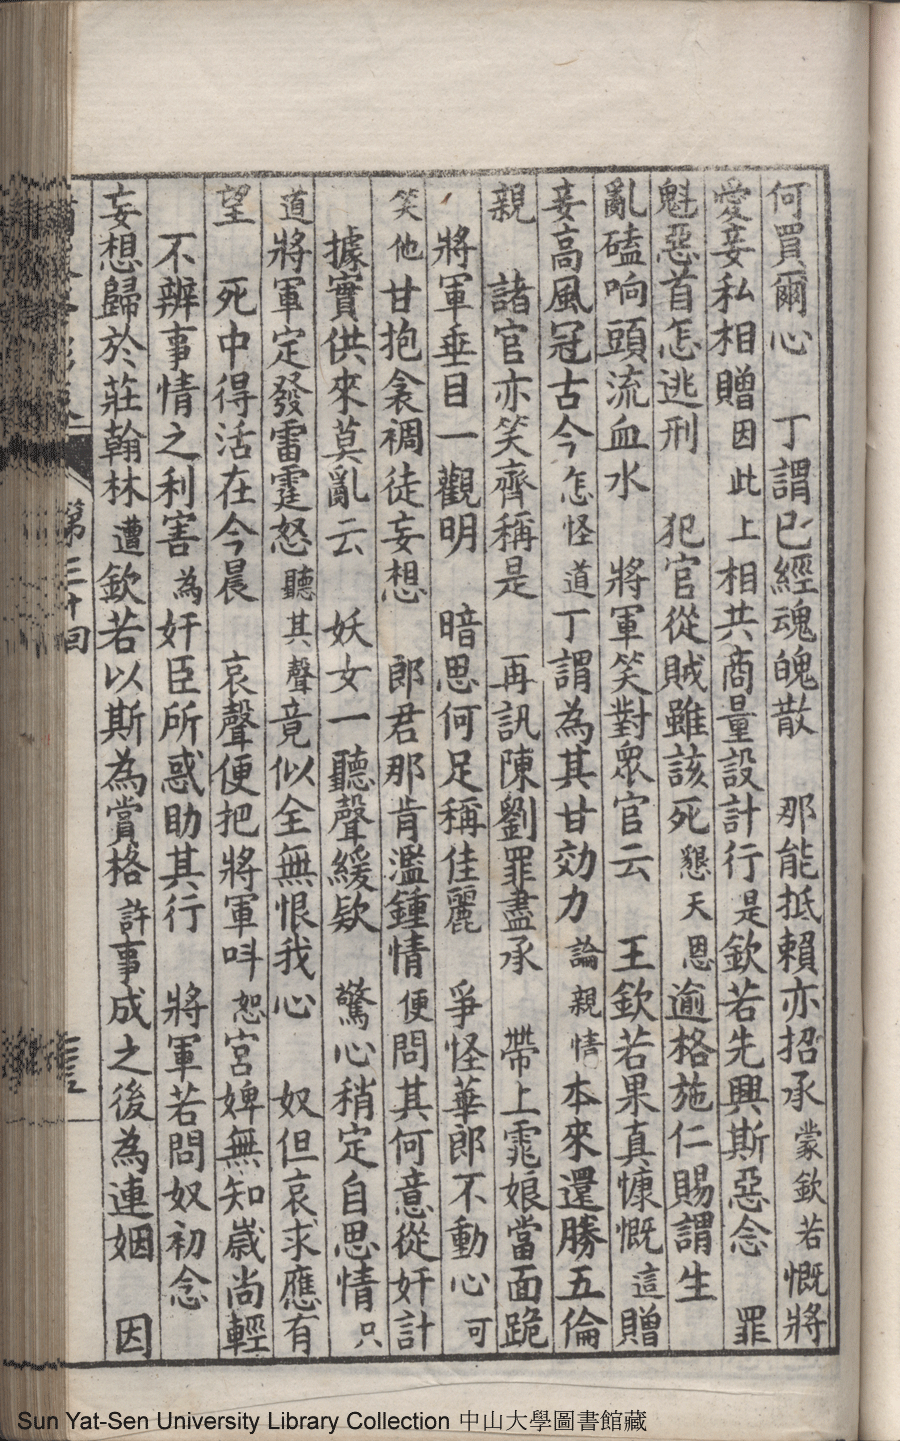 何買爾心　丁謂已經魂魄散　那能抵賴亦招承蒙欽若慨將
愛妾私相贈因此上相共商量設計行是欽若先興斯惡念　罪
魁惡首怎逃刑　犯官從賊雖該死懇天恩逾格施仁賜謂生
亂磕响頭流血水　將軍笑對眾官云　王欽若果真慷慨這贈
妾高風冠古今怎怪道丁謂為其甘効力論親情本來還勝五倫
親　諸官亦笑齊稱是　再訊陳劉罪盡承　帶上霓娘當面跪
將軍垂目一觀明　暗思何足稱佳麗　爭怪華郎不動心可
笑他甘抱衾裯徒妄想　郎君那肯濫鍾情便問其何意從奸計
據實供來莫亂云　妖女一聽聲緩欵　驚心稍定自思情只
道將軍定發雷霆怒聽其聲竟似全無恨我心　奴但哀求應有
望　死中得活在今晨　哀聲便把將軍呌恕宮婢無知歲尚輕
不辨事情之利害為奸臣所惑助其行　將軍若問奴初念
妄想歸於莊翰林遭欽若以斯為賞格許事成之後為連姻　因
第三十回